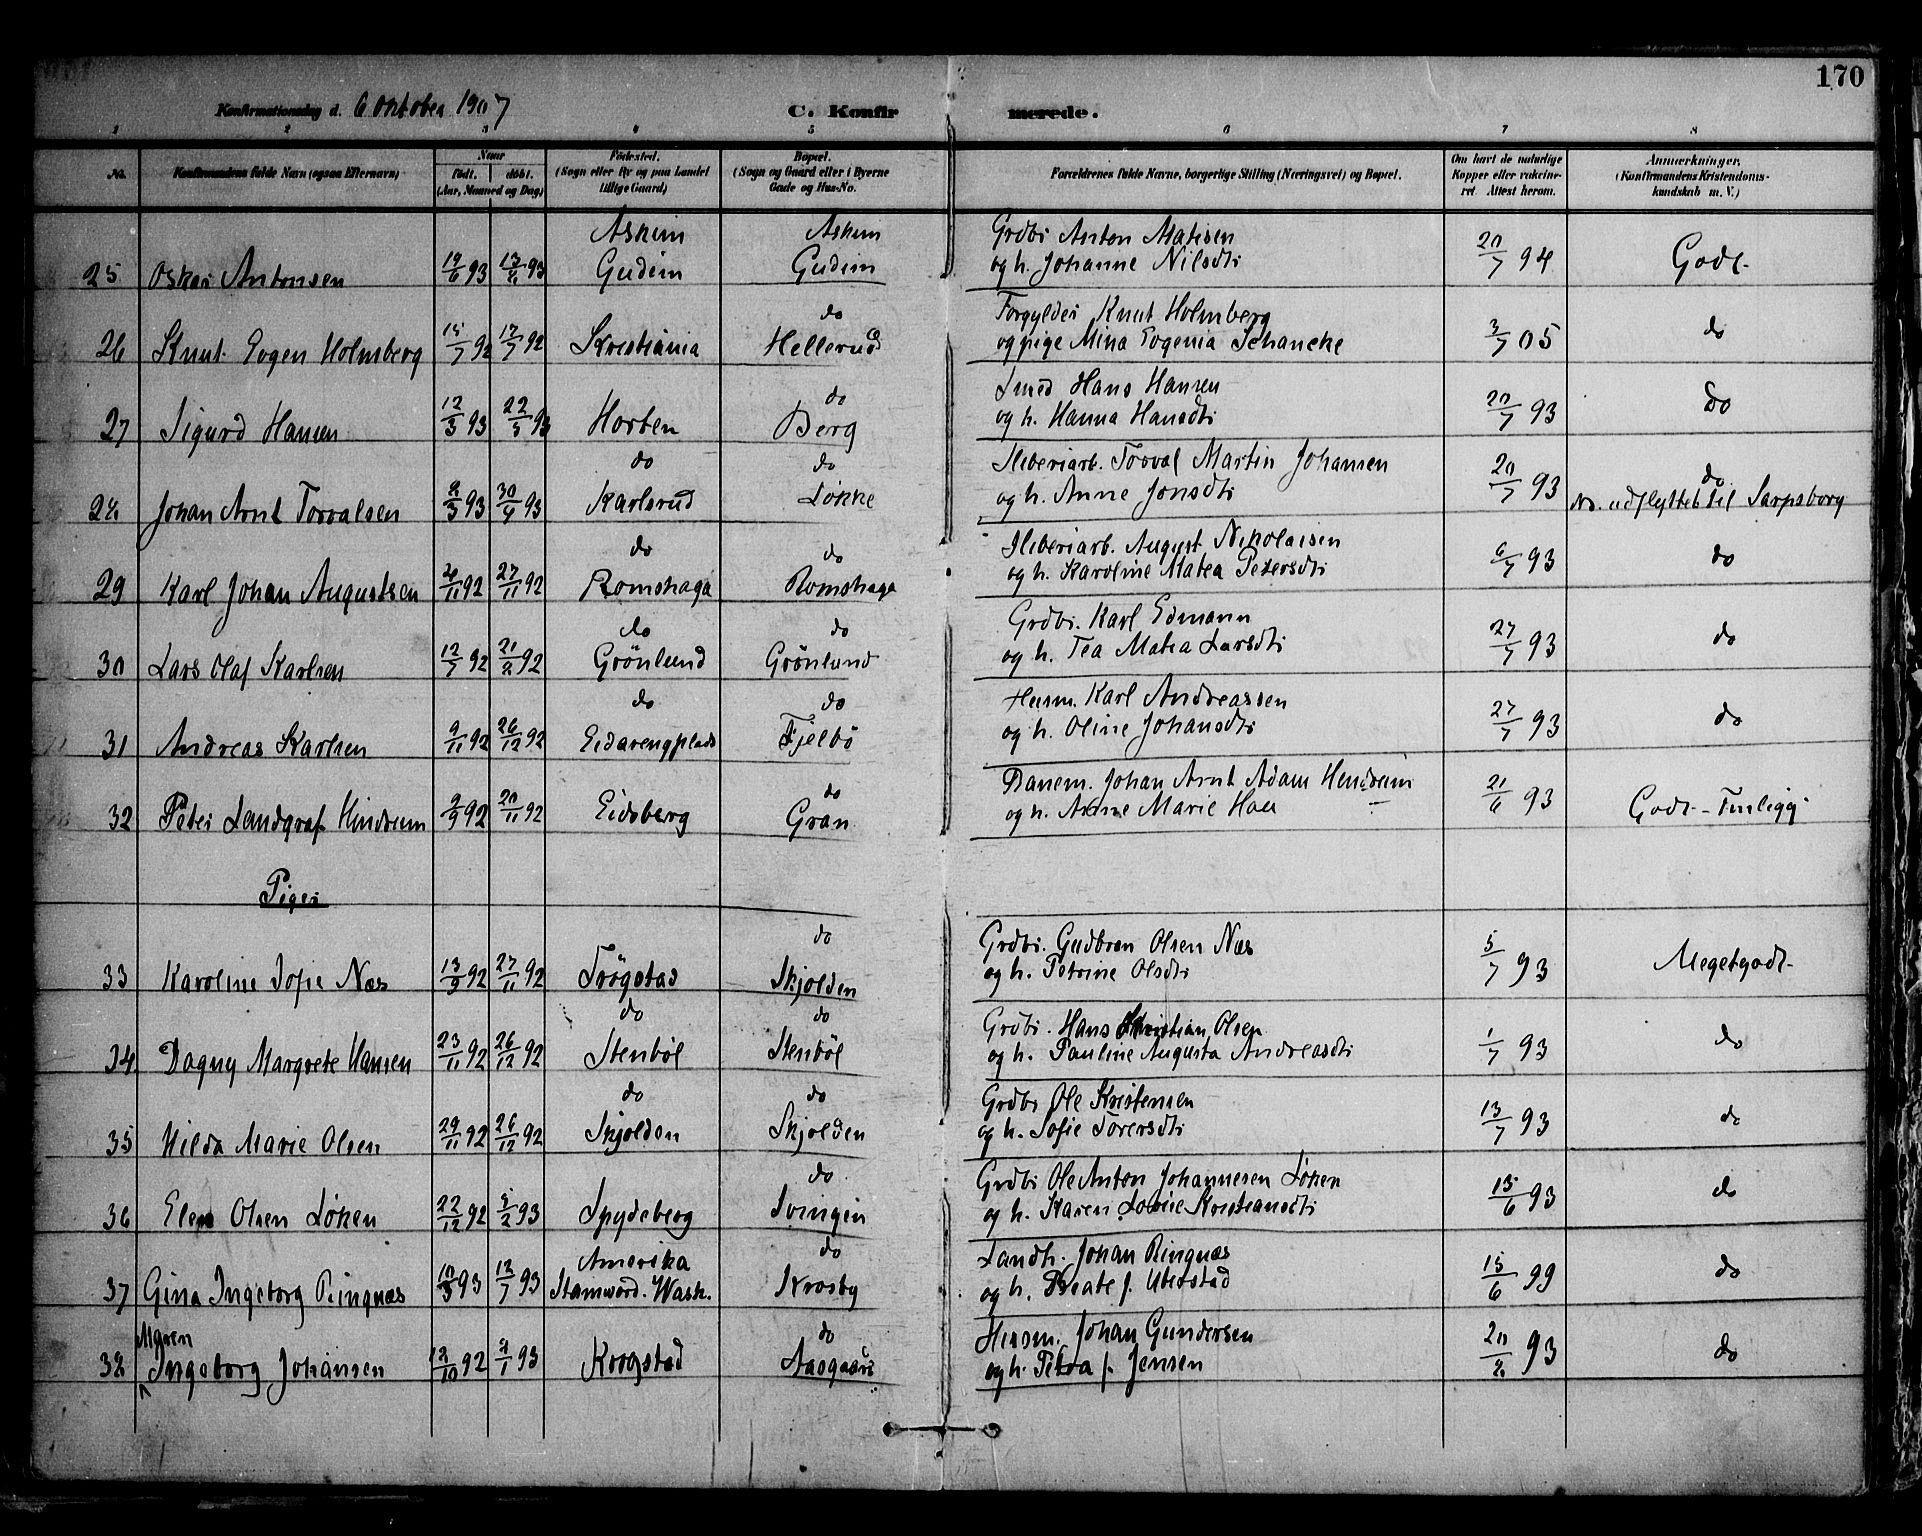 170
Konfirmationsdag d. 6 Oktober 1907
C. Konfirmerede.
1 2 3 4 5 6 7 8
No. Konfirmandens fulde Navn (ogsaa Efternavn) Naar født. døbt. (Aar, Maaned og Dag) Fødested. (Sogn eller By og paa Landet tillige Gaard) Bopæl. (Sogn og Gaard eller i Byerne Gade og Hus-No. Forældrenes fulde Navne, borgerlige Stilling (Næringsvei) og Bopæl. Om havt de naturlige Kopper eller vaccineret. Attest herom. Anmærkninger. (Konfirmandens Kristendomskundskab m. V.)
Askim Askim Grdbr Anton Matisen
25 Oskar Antonsen 19/6 93 13/8 93 Gudim Gudim og h. Johanne Nilsdtr 20/7 94 Godt
do Forgylder Knut Holmberg
26 Knut Evgen Holmberg 15/7 92 17/7 92 Kristiania Hellerud og pige Mina Evgenia Schancke 3/7 05 do
do Smed Hans Hansen
27 Sigurd Hansen 12/3 93 22/5 93 Horten Berg og h. Hanna Hansdtr 20/7 93 do
do do Sliberiarb. Torval Martin Johansen
28 Johan Arnt Torvalsen 8/3 93 30/4 93 Karlsrud Løkke og h. Anne Jonsdtr 20/7 93 do No. udflyttet til Sarpsborg
do do Sliberiarb. August Nikolaisen
29 Karl Johan Augustsen 27/11 92 Romshaga Romshaga og h. Karoline Matea Petersdtr 6/7 93 do
do do Grdbr. Karl Edmann
30 Lars Olaf Karlsen 12/7 92 21/8 92 Grönlund Grönlund og h. Tea Matea Larsdtr 27/7 93 do
do do Husm. Karl Andreassen
31 Andreas Karlsen 9/11 92 26/12 92 Eidarengplads Fjelbö og h. Oline Johansdtr 27/7 93 do
do Banem. Johan Arnt Adam Hendrum
32 Peter Landgraf Hindrum 2/9 92 20/11 92 Eidsberg Gran og h. Anne Marie Hou 21/6 93 Godt
Piger
do Grdbr. Gudbran Olsen Næs
33 Karoline Sofie Næs 13/9 92 27/11 92 Trögstad Skjolden og h. Petrine Olsdtr 5/7 93 Megetgodt
do do Grdbr. Hans Kristian Olsen
34 Dagny Margrete Hansen 23/11 92 26/12 92 Stenböl Stenböl og h. Pauline Augusta Andreasdtr 1/7 93 do
do do Grdbr Ole Kristensen
35 Hilda Marie Olsen 29/11 92 26/12 92 Skjolden Skjolden og h. Sofie Torersdtr 13/7 93 do
do Grdbr Ole Anton Johannesen Löken
36 Elen Olsen Löken 22/12 92 5/2 93 Spydeberg Svingen og h. Karen Lovise Kristiansdtr 15/6 93 do
Amerika do Landh. Johan Ringnæs
37 Gina Ingeborg Ringnæs 10/3 93 12/7 93 Stanword. Wash. Krosby og h. Beate f. Ulerstad 15/6 99 do
Maren do Husm. Johan Gundersen
38 Ingeborg Johansen 12/10 92 8/1 93 Krogstad Aasgaard og h. Petra f. Jensen 20/8 93 do